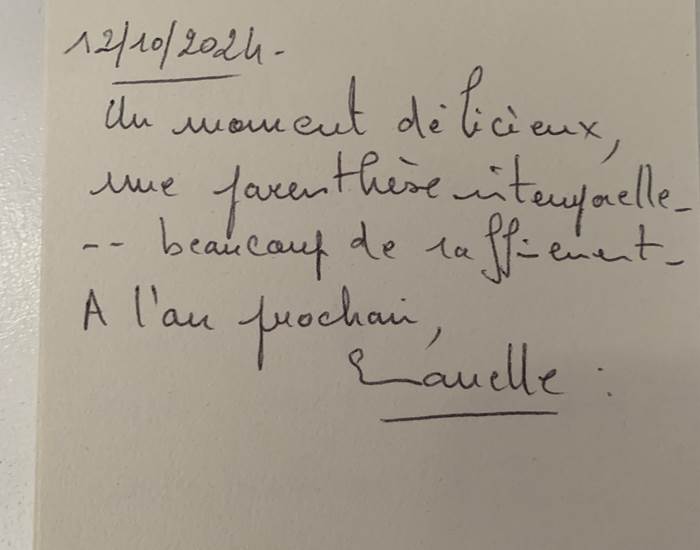 12/10/2024-
Un moment délicieux,
une parenthèse intemporelle-
-- beaucoup de raffinement-
A l'an prochain,